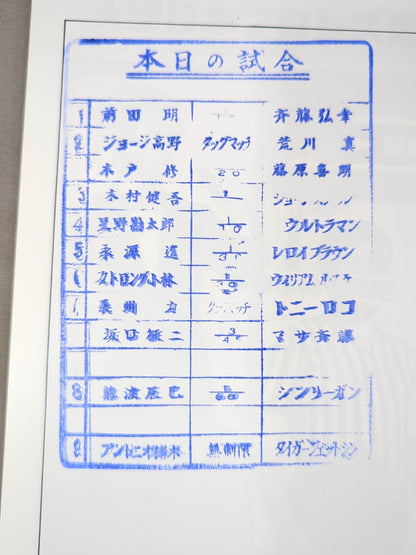 本日の試合
1 前田 明 斉藤弘幸
2 ジョージ高野 タッグマッチ 荒川 真
木戸 修 20 藤原喜明
3 木村健吾 1
4 星野勘太郎 1/10 ウルトラマン
5 永源 遙 レロイブラウン
6 ストロング小林 ウィリアム
7 長州 力 タッグマッチ トニーロコ
坂口征二 3/45 マサ斉藤
8 藤波辰巳 シンリーガン
9 アントニオ猪木 無制限 タイガージェットシン